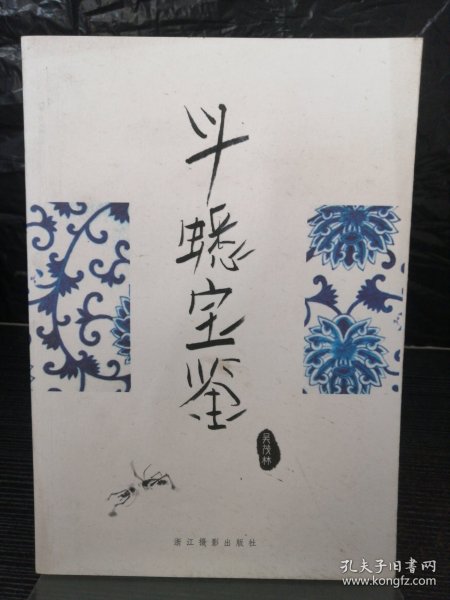 斗蟋宝鉴
吴茂林
浙江摄影出版社
孔夫子旧书网
www.kongfz.com